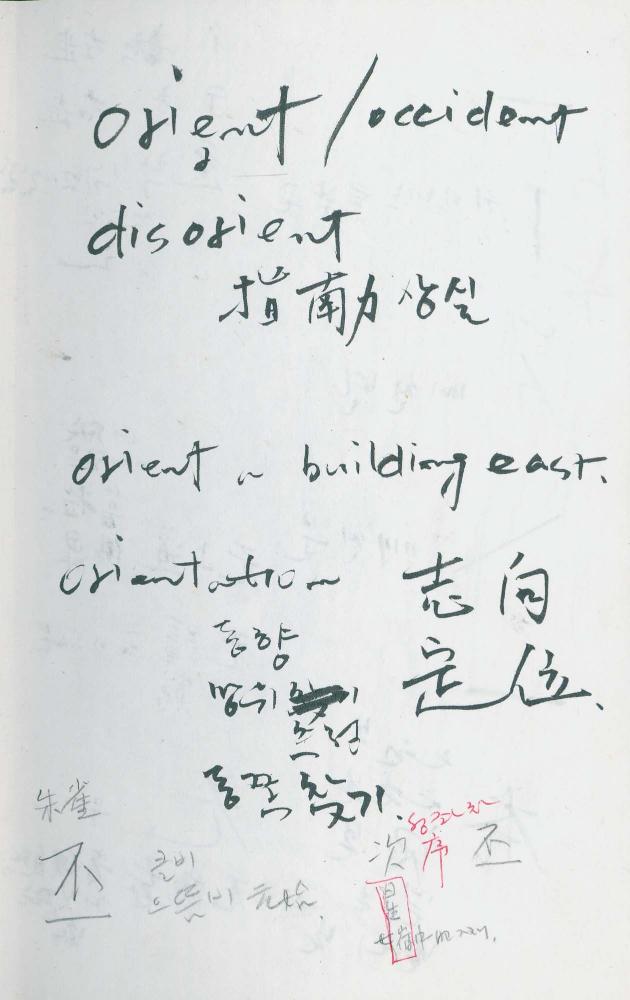 orient / occident
disorient
指南力 상실
orient a building east.
orientation 志向
동향 定位.
방위
조정
동쪽 찾기.
朱雀
丕 클비
으뜸비 元始.
次 序 丕